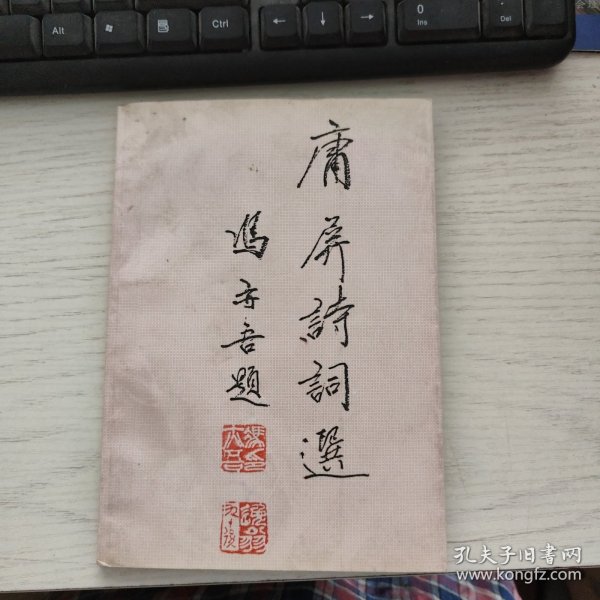 庸屏詩詞選
馮亦吾題
Alt
Ctrl
0
Ins
Del
孔夫子旧书网
www.kongfz.com